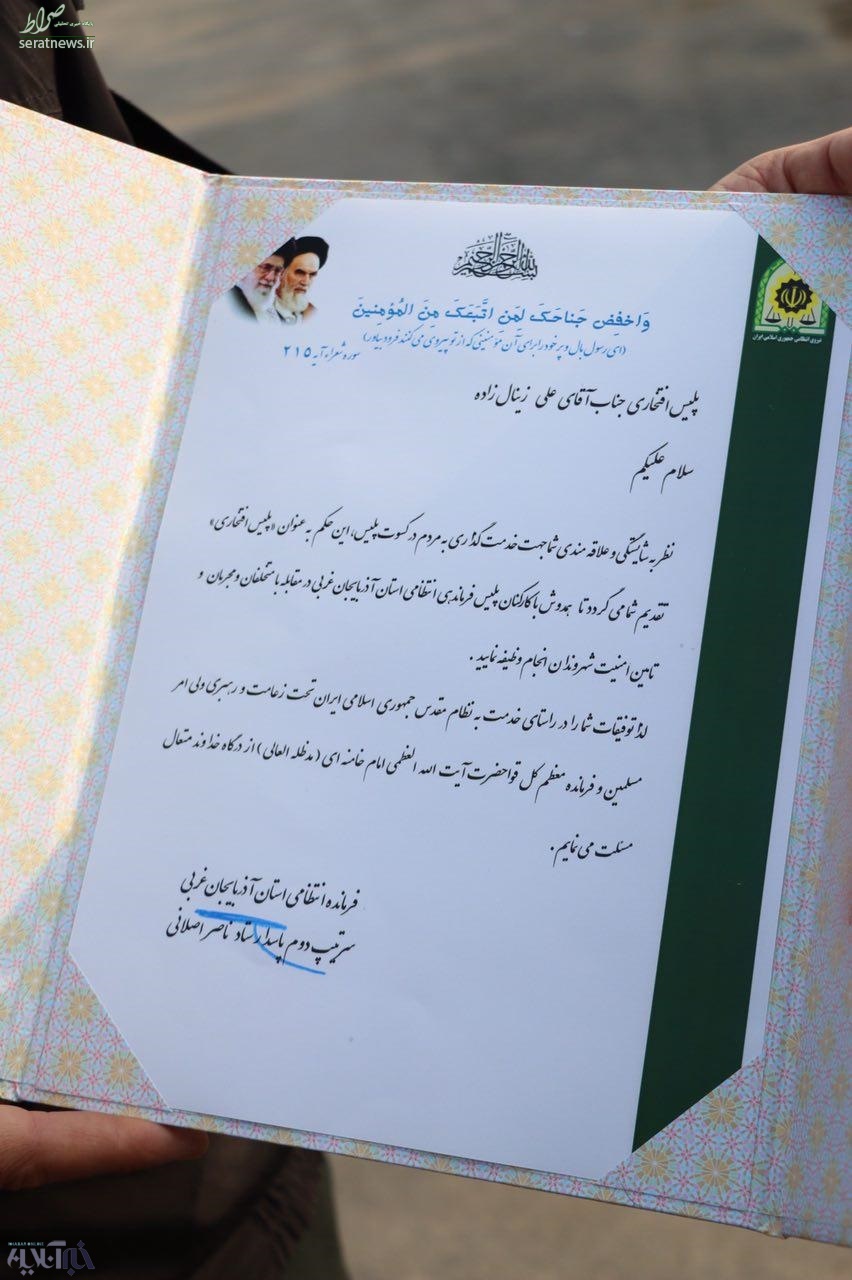 صراط
پایگاه خبری تحلیلی
seratnews.ir
بسم الله الرحمن الرحیم
وَاخفِض جَناحَکَ لِمَن اتَّبَعَکَ مِنَ المُؤمِنینَ
(ای رسول بال و پر خود را برای آن مؤمنینی که از تو پیروی می کنند فرود بیاور)
سوره شعراء آیه ۲۱۵
نیروی انتظامی جمهوری اسلامی ایران
پلیس افتخاری جناب آقای علی زینال زاده
سلام علیکم
نظر به شایستگی و علاقه مندی شما جهت خدمت گذاری به مردم در کسوت پلیس، این حکم به عنوان «پلیس افتخاری»
تقدیم شما می گردد تا همدوش با کارکنان پلیس فرماندهی انتظامی استان آذربایجان غربی در مقابله با متخلفان و مجرمان و
تامین امنیت شهروندان انجام وظیفه نمایید.
لذا توفیقات شما را در راستای خدمت به نظام مقدس جمهوری اسلامی ایران تحت زعامت و رهبری ولی امر
مسلمین و فرمانده معظم کل قوا حضرت آیت الله العظمی امام خامنه ای (مدظله العالی) از درگاه خداوند متعال
مسئلت می نمایم.
فرمانده انتظامی استان آذربایجان غربی
سرتیپ دوم پاسدار ستاد ناصر اصلانی
خبرآنلاین